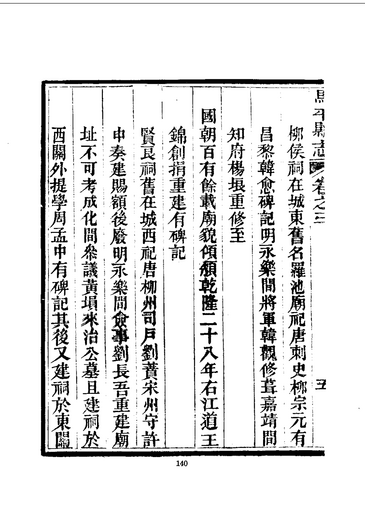 馬平縣志 卷之三 五
柳侯祠在城東舊名羅池廟祀唐刺史柳宗元有
昌黎韓愈碑記明永樂間將軍韓觀修葺嘉靖間
知府楊垠重修至
國朝百有餘載廟貌傾頹乾隆二十八年右江道王
錦創捐重建有碑記
賢良祠舊在城西祀唐柳州司戶劉蕡宋州守許
申奏建賜額後廢明永樂間僉事劉長吾重建廟
址不可考成化間參議黃塤來治公墓且建祠於
西關外提學周孟中有碑記其後又建祠於東關
140